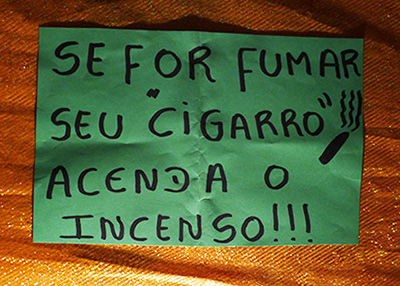 SE FOR FUMAR
SEU "CIGARRO"
ACENDA O
INCENSO!!!